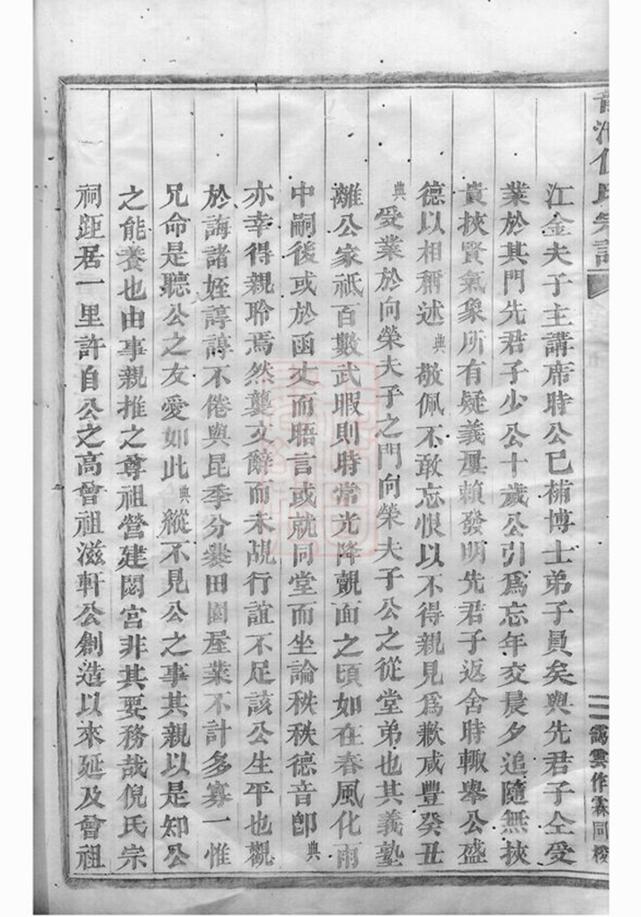 氏宗譜
江金夫子主講席時公已補博士弟子員矣與先君子仝受
業於其門先君子少公十歲公引爲忘年交晨夕追隨無挾
貴挾賢氣象所有疑義屢賴發明先君子返舍時輙舉公盛
德以相稱述典敬佩不敢忘恨以不得親見爲歉咸豐癸丑
典受業於向榮夫子之門向榮夫子公之從堂弟也其義塾
離公家祇百數武暇則時常光降覿面之頃如在春風化雨
中嗣後或於函丈而晤言或就同堂而坐論秩秩德音卽典
亦幸得親聆焉然襲文辭而未覘行誼不足該公生平也觀
於誨諸姪諄諄不倦與昆季分爨田園屋業不計多寡一惟
兄命是聽公之友愛如此典縱不見公之事其親以是知公
之能養也由事親推之尊祖營建閟宮非其要務哉倪氏宗
祠距居一里許自公之高曾祖滋軒公創造以來延及曾祖
雲作霖同梭